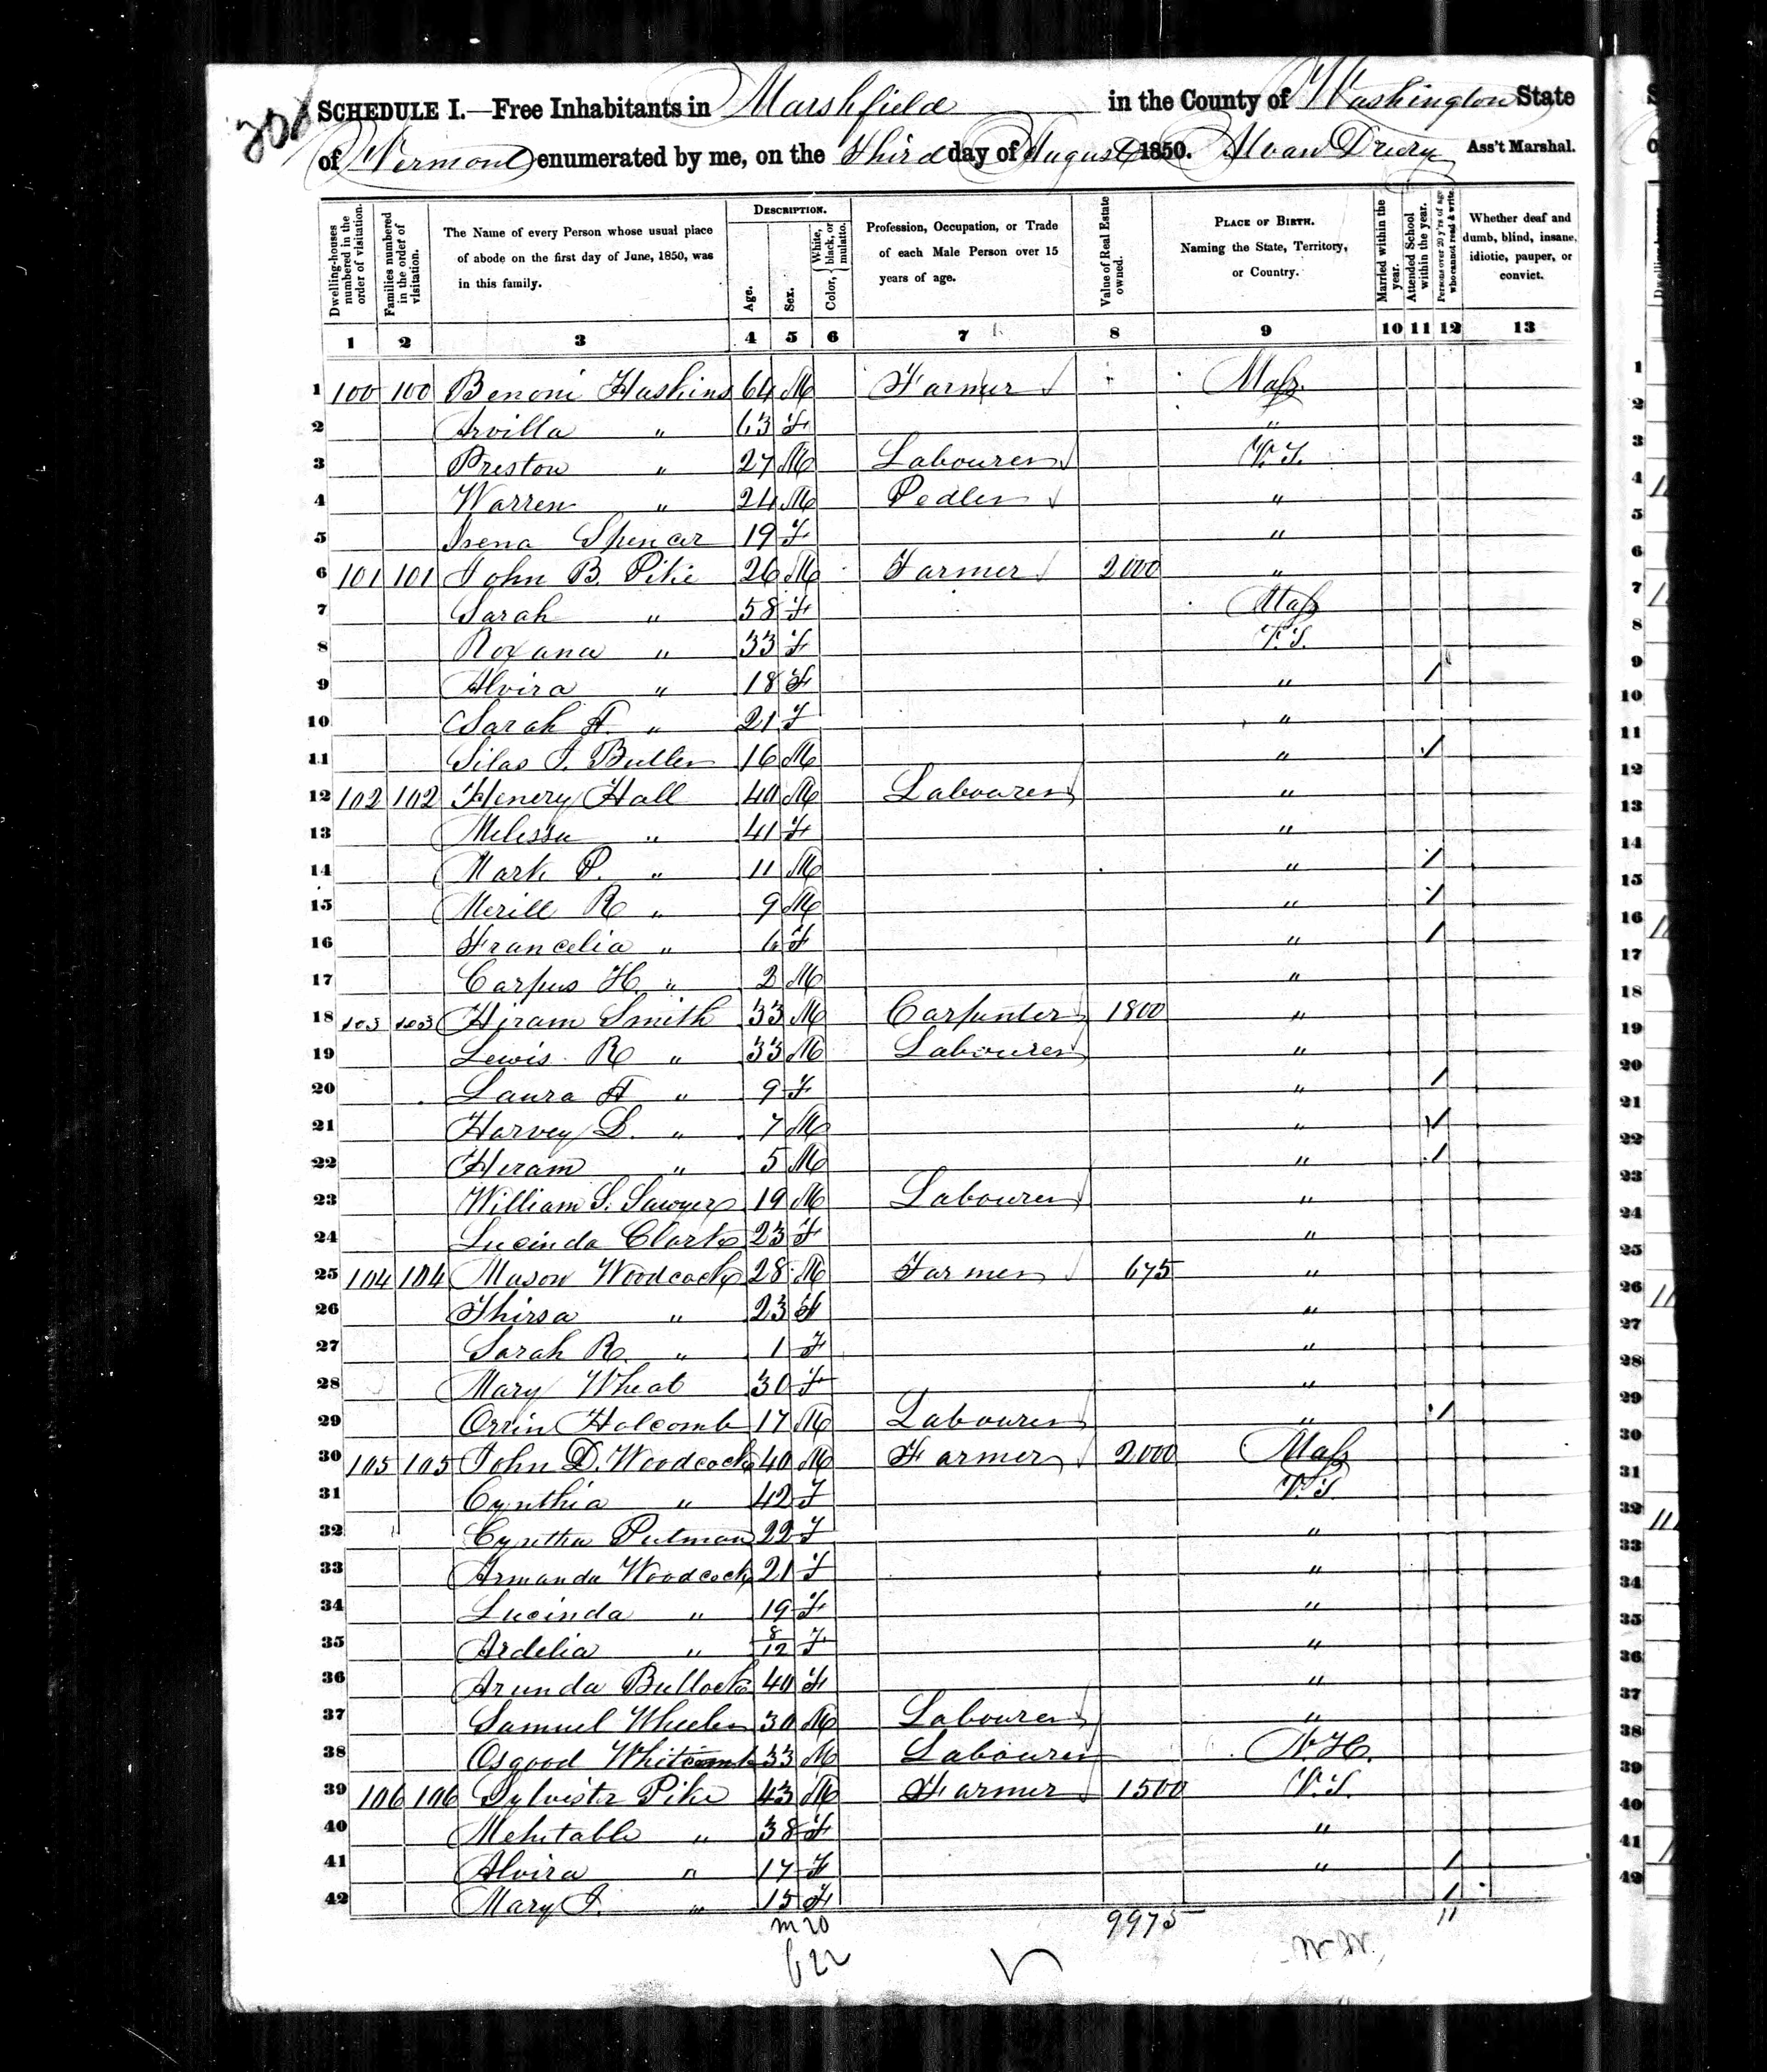 SCHEDULE I.—Free Inhabitants in Marshfield in the County of Washington State
of Vermont enumerated by me, on the third day of August 1850. Alvan Drury Ass't Marshal.
Dwelling-houses numbered in the order of visitation.
Families numbered in the order of visitation.
The Name of every Person whose usual place of abode on the first day of June, 1850, was in this family.
DESCRIPTION.
Age.
Sex.
Color, { White, black, or mulatto.
Profession, Occupation, or Trade of each Male Person over 15 years of age.
Value of Real Estate owned.
PLACE OF BIRTH. Naming the State, Territory, or Country.
Married within the year.
Attended School within the year.
Persons over 20 y'rs of age who cannot read & write.
Whether deaf and dumb, blind, insane, idiotic, pauper, or convict.
1 2 3 4 5 6 7 8 9 10 11 12 13
1 100 100 Benoni Haskins 64 M Farmer Mass.
2 Arvilla " 63 F "
3 Preston " 27 M Labourer V.T.
4 Warren " 24 M Pedler "
5 Irena Spencer 19 F "
6 101 101 John B. Pike 26 M Farmer 2000 "
7 Sarah " 58 F Mass
8 Roxana " 33 F V.T.
9 Alvira " 18 F " /
10 Sarah A. " 21 F "
11 Silas J. Butler 16 M " /
12 102 102 Henery Hall 40 M Labourer "
13 Melissa " 41 F "
14 Mark P. " 11 M " /
15 Merill R " 9 M " /
16 Francelia " 6 F " /
17 Carpus H. " 2 M "
18 103 103 Hiram Smith 33 M Carpenter 1800 "
19 Lewis R " 33 M Labourer "
20 Laura A " 9 F " /
21 Harvey L. " 7 M " /
22 Hiram " 5 M " /
23 William S. Sawyer 19 M Labourer "
24 Lucinda Clark 23 F "
25 104 104 Mason Woodcock 28 M Farmer 675 "
26 Thirsa " 23 F "
27 Sarah R. " 1 F "
28 Mary Wheat 30 F "
29 Orrin Holcomb 17 M Labourer " /
30 105 105 John D. Woodcock 40 M Farmer 2000 Mass
31 Cynthia " 42 F V.T.
32 Cyntha Putman 22 F "
33 Armanda Woodcock 21 F "
34 Lucinda " 19 F "
35 Ardelia " 8/12 F "
36 Arunda Bullock 40 F "
37 Samuel Wheeler 30 M Labourer "
38 Osgood Whitcomb 33 M Labourer N.H.
39 106 106 Sylvester Pike 43 M Farmer 1500 V.T.
40 Mehitable " 38 F "
41 Alvira " 17 F " /
42 Mary J. " 15 F /
m 20 9975 11
f 22